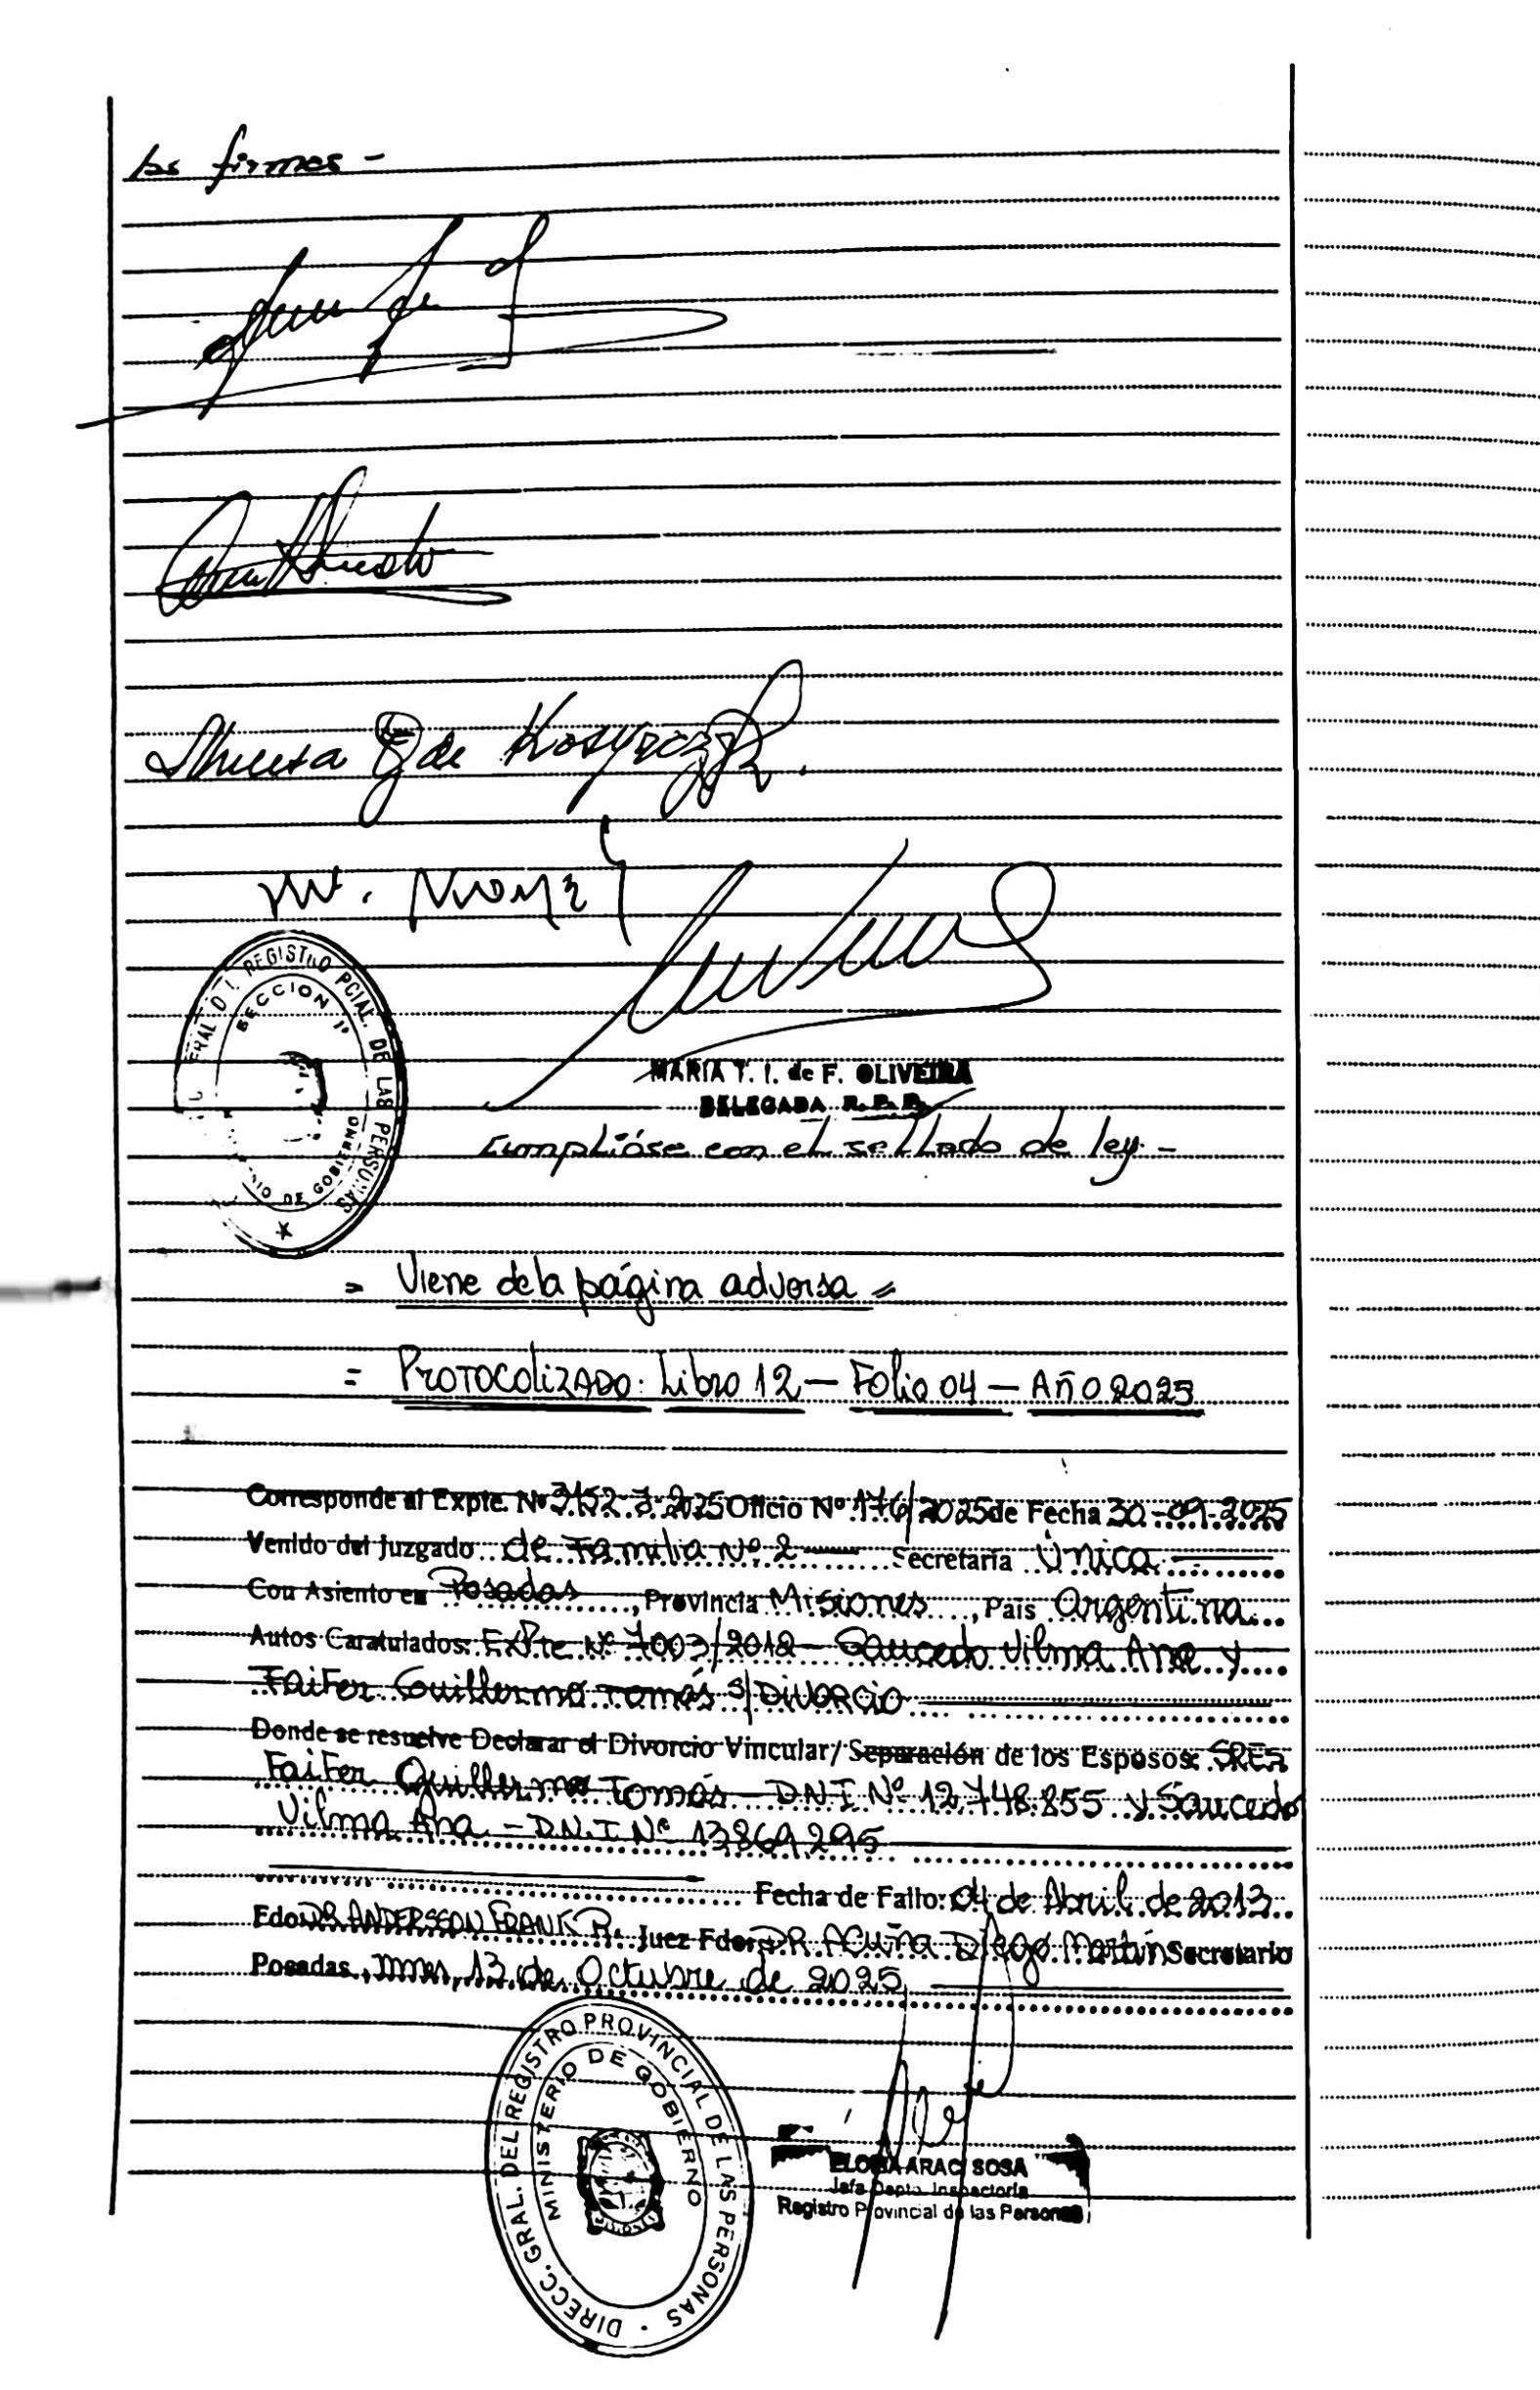 las firmas -
Theresa E de Kosyrczyk.
M.
DIRECC. GENERAL DEL REGISTRO PCIAL. DE LAS PERSONAS
SECCION 1º
MINISTERIO DE GOBIERNO
MARIA T. I. de F. OLIVEIRA
DELEGADA R. P. P.
Cumplióse con el sellado de ley.-
= Viene de la página adversa =
= PROTOCOLIZADO: Libro 12 - Folio 04 - AÑO 2025
Corresponde al Expte. Nº 3152-J-2025 Oficio Nº 176/2025 de Fecha 30-09-2025
Venido del Juzgado de Familia Nº 2 Secretaría Única
Con Asiento en Posadas, Provincia Misiones, País Argentina
Autos Caratulados: EXPte Nº 7003/2012 - Saucedo Vilma Ana y
Faifer Guillermo Tomás s/ DIVORCIO
Donde se resuelve Declarar el Divorcio Vincular/Separación de los Esposos: SRES
Faifer Guillermo Tomás - DNI Nº 12.748.855 y Saucedo
Vilma Ana - D.N.I Nº 13869295
Fecha de Fallo: 04 de Abril de 2013
Fdo: DR ANDERSSON FRANK R. Juez Fdo: DR ACUÑA Diego Martín Secretario
Posadas, Mnes, 13 de Octubre de 2025
DIRECC. GRAL. DEL REGISTRO PROVINCIAL DE LAS PERSONAS
MINISTERIO DE GOBIERNO
ARACI SOSA
Jefa Depto. Inspectoría
Registro Provincial de las Personas